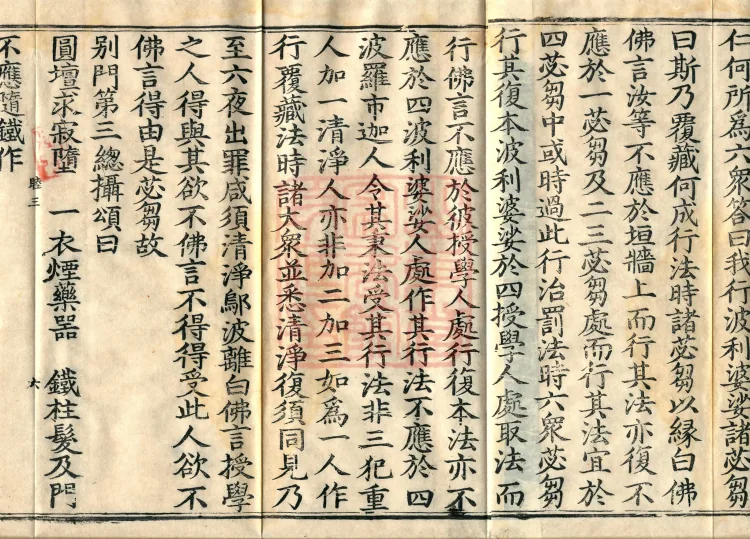 仁何所爲六衆答曰我行波利婆娑諸苾芻
曰斯乃覆藏何成行法時諸苾芻以縁白佛
佛言汝等不應於垣牆上而行其法亦復不
應於一苾芻及二三苾芻處而行其法宜於
四苾芻中或時過此行治罰法時六衆苾芻
行其復本波利婆娑於四授學人處取法而
行佛言不應於彼授學人處行復本法亦不
應於四波利婆娑人處作其行法不應於四
波羅市迦人令其秉法受其行法非三犯重
人加一清淨人亦非加二加三如爲一人作
行覆藏法時諸大衆並悉清淨復須同見乃
至六夜出罪咸須清淨鄔波離白佛言授學
之人得與其欲不佛言不得得受此人欲不
佛言得由是苾芻故
别門第三總攝頌曰
圓壇求寂墮 一衣煙藥器 鐵柱髮及門
睦三 六
不應隨鐵作